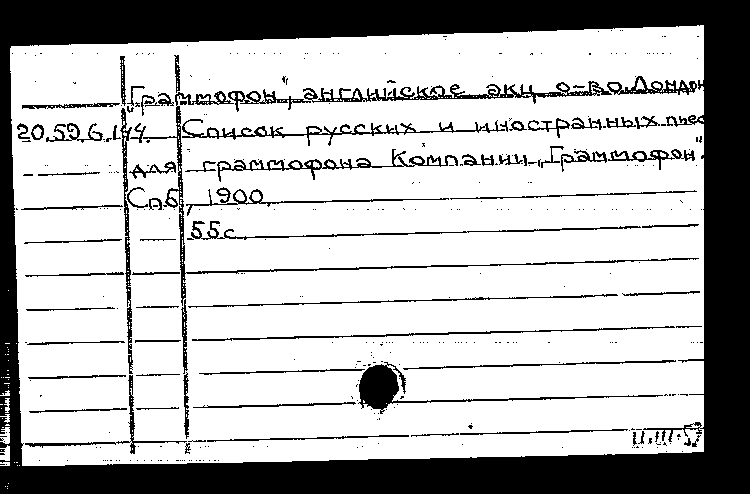 „Граммофон", английское акц. о-во. Лондон
20.59.6.144. Список русских и иностранных пьес
для граммофона Компании „Граммофон".
Спб, 1900.
55 с.